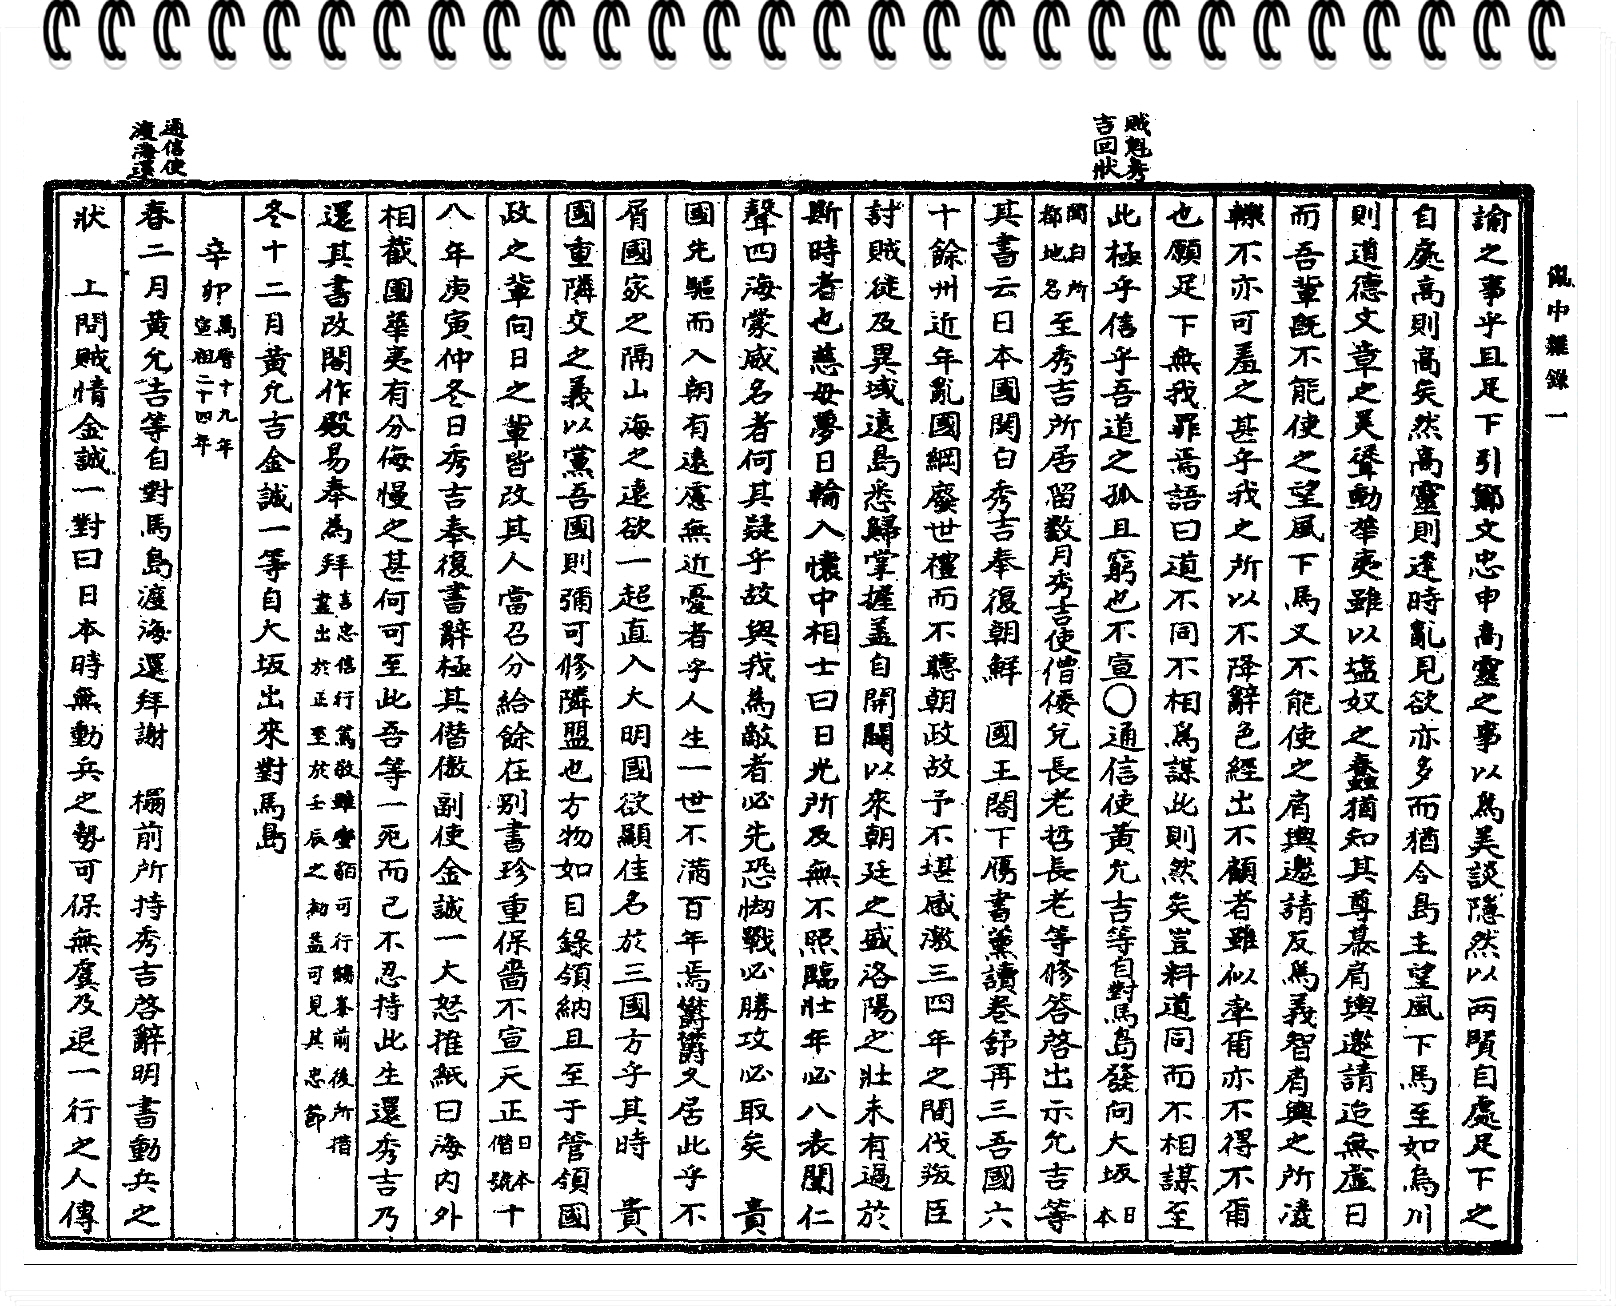 亂中雜錄一
賊魁秀
吉回狀
通信使
渡海還
諭之事乎且足下引鄭文忠申高靈之事以爲美談隱然以兩賢自處足下之
自處高則高矣然高靈則達時亂見欲亦多而猶令島主望風下馬至如烏川
則道德文章之異聲動華夷雖以塩奴之蠢猶知其尊慕肩輿邀請迨無虛日
而吾輩旣不能使之望風下馬又不能使之肩輿邀請反爲義智肩輿之所凌
轢不亦可羞之甚乎我之所以不降辭色經出不顧者雖似率爾亦不得不爾
也願足下無我罪焉語曰道不同不相爲謀此則然矣豈料道同而不相謀至
此極乎信乎吾道之孤且窮也不宣○通信使黃允吉等自對馬島發向大坂日本
關白所都地名至秀吉所居留數月秀吉使僧倭兌長老哲長老等修答啓出示允吉等
其書云日本國関白秀吉奉復朝鮮 國王閤下鴈書薰讀卷舒再三吾國六
十餘州近年亂國綱廢世禮而不聽朝政故予不堪感激三四年之間伐叛臣
討賊徒及異域遠島悉歸掌握盖自開闢以來朝廷之盛洛陽之壯未有過於
斯時者也慈母夢日輪入懷中相士曰日光所及無不照臨壯年必八表聞仁
聲四海蒙威名者何其疑乎故與我爲敵者必先恐㤼戰必勝攻必取矣 貴
國先驅而入朝有遠慮無近憂者乎人生一世不滿百年焉欝欝久居此乎不
屑國家之隔山海之遠欲一超直入大明國欲顯佳名於三國方乎其時 貴
國重隣交之義以黨吾國則彌可修隣盟也方物如目錄領納且至于管領國
政之輩向日之輩皆改其人當召分給餘在別書珍重保嗇不宣天正日本僭號十
八年庚寅仲冬日秀吉奉復書辭極其僭傲副使金誠一大怒推紙曰海內外
相截國華夷有分侮慢之甚何可至此吾等一死而已不忍持此生還秀吉乃
還其書改閤作殿易奉爲拜言忠信行篤敬雖蠻貊可行觀峯前後所措盡出於正至於壬辰之効益可見其忠節
冬十二月黃允吉金誠一等自大坂出來對馬島
辛卯萬曆十九年宣祖二十四年
春二月黃允吉等自對馬島渡海還拜謝 榻前所持秀吉啓辭明書動兵之
狀 上問賊情金誠一對曰日本時無動兵之勢可保無虞及退一行之人傳